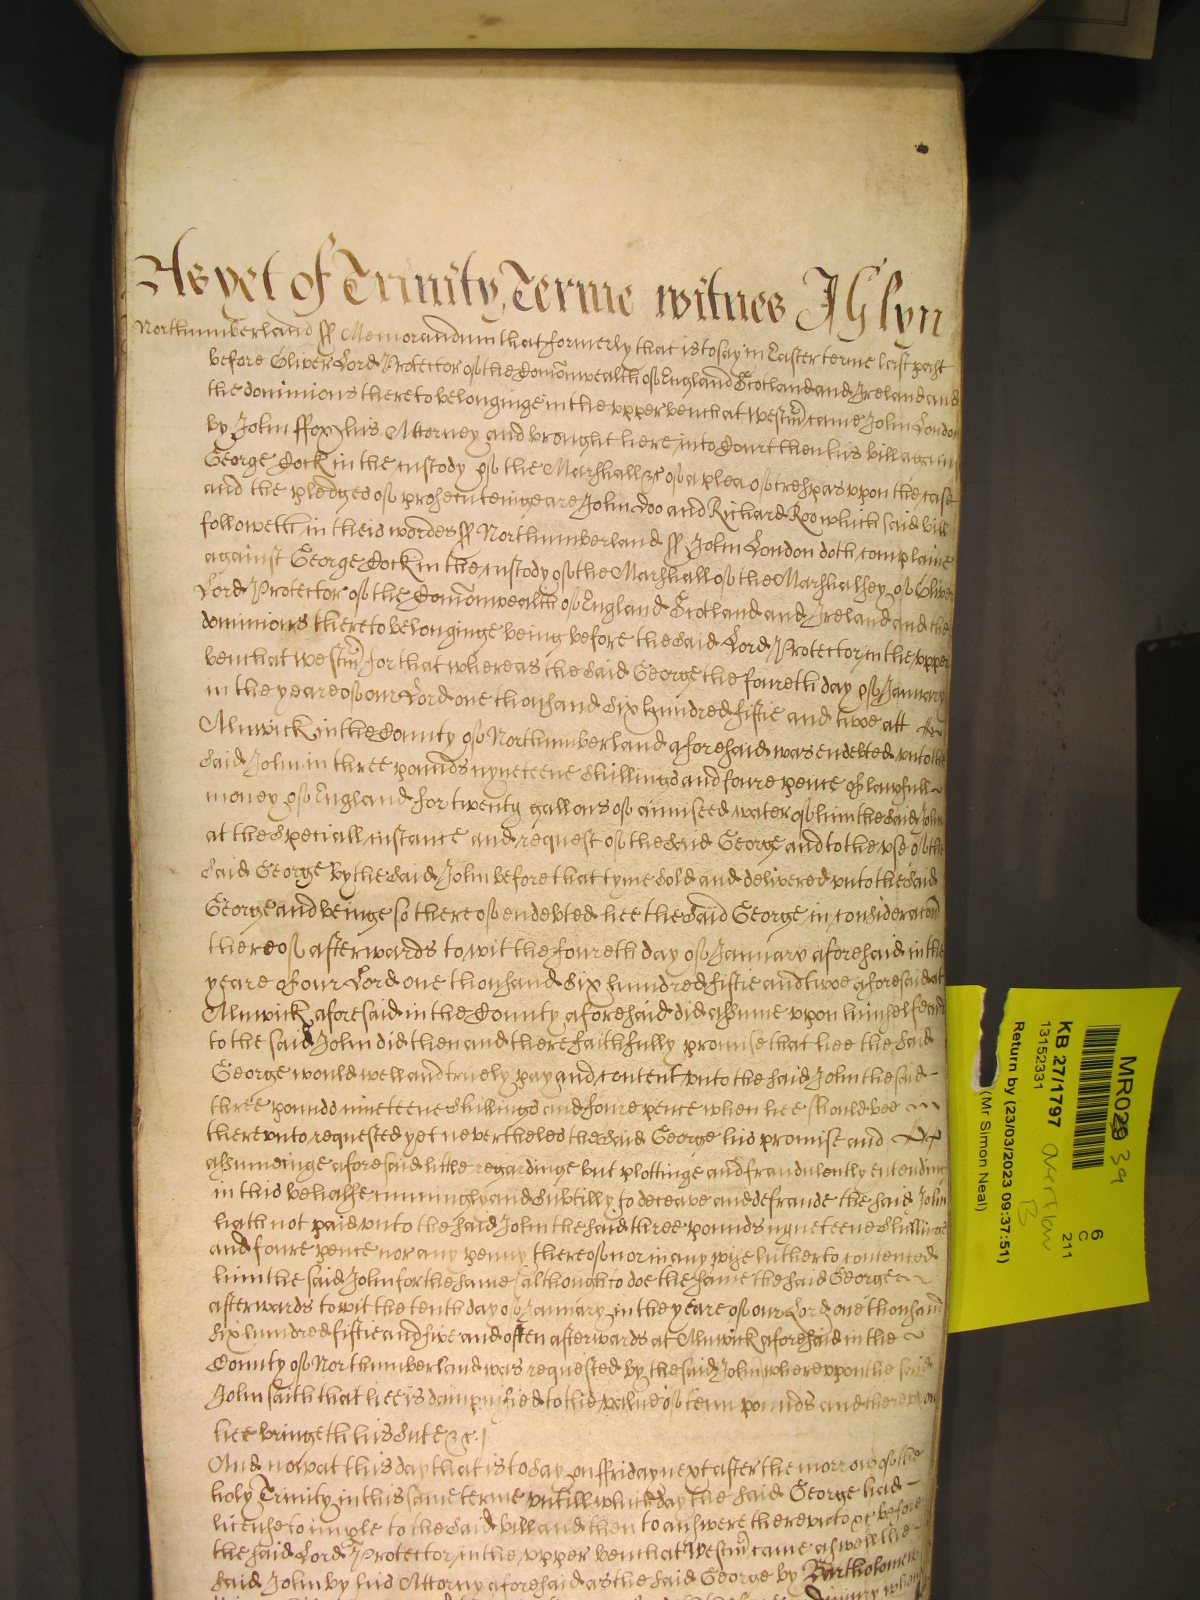 As yet of Trinity Terme witnes J Glyn
Northumberland ss Memorandum that formerly that is to say in Easter terme last past
before Oliver Lord Protector of the Comonwealth of England Scotland and Ireland and
the dominions thereto belonginge in the upper bench at Westm came John London
by John ffox his Attorney and brought here into Court then his bill against
George Cock in the custody of the Marshall &c of a plea of trespas upon the case
and the pledges of prosecuteinge are John Doo and Richard Roo which said bill
followeth in theis wordes ss Northumberland ss John London doth complaine
against George Cock in the custody of the Marshall of the Marshalsey of Oliver
Lord Protector of the Comonwealth of England Scotland and Ireland and the
dominions thereto belonginge being before the said Lord Protector in the upper
bench at Westm for that whereas the said George the foureth day of January
in the yeare of our Lord one thousand six hundred fiftie and twoe att
Alnwick in the County of Northumberland aforesaid was endebted unto the
said John in three pounds nyneteene shillings and foure pence of lawfull
money of England for twenty gallons of anniseed water of him the said John
at the speciall instance and request of the said George and to the use of the
said George by the said John before that tyme sold and delivered unto the said
George and beinge so thereof endebted hee the said George in consideracon
thereof afterwards to wit the foureth day of January aforesaid in the
yeare of our Lord one thousand six hundred fiftie and twoe aforesaid at
Alnwick aforesaid in the County aforesaid did assume upon himselfe and
to the said John did then and there faithfully promise that hee the said
George would well and truely pay and content unto the said John the said
three pounds nineteene shillings and foure pence when hee should bee
thereunto requested yet nevertheles the said George his promise and
assumeinge aforesaid little regardinge but plottinge and fraudulently entending
in this behalfe cunningly and subtilly to deceave and defraude the said John
hath not paid unto the said John the said three pounds nyneteene shillings
and foure pence nor any penny thereof nor in any wise hitherto contented
him the said John for the same although to doe the same the said George
afterwards to wit the tenth day of January in the yeare of our Lord one thousand
six hundred fiftie and five and often afterwards at Alnwick aforesaid in the
County of Northumberland was requested by the said John whereupon the said
John saith that hee is dampnified to the value of tenn pounds and thereupon
hee bringeth his sute &c
And now at this day that is to say on ffriday next after the morrow of the
holy Trinity in this same terme untill which day the said George had
license to imple to the said bill and then to answere thereunto &c before
the said Lord Protector in the upper bench at Westm came aswell the
said John by his Attorny aforesaid as the said George by Bartholomew
MR029 39
6
C
211
KB 27/1797
overflow
B
13152331
Return by (23/03/2023 09:37:51)
(Mr Simon Neal)